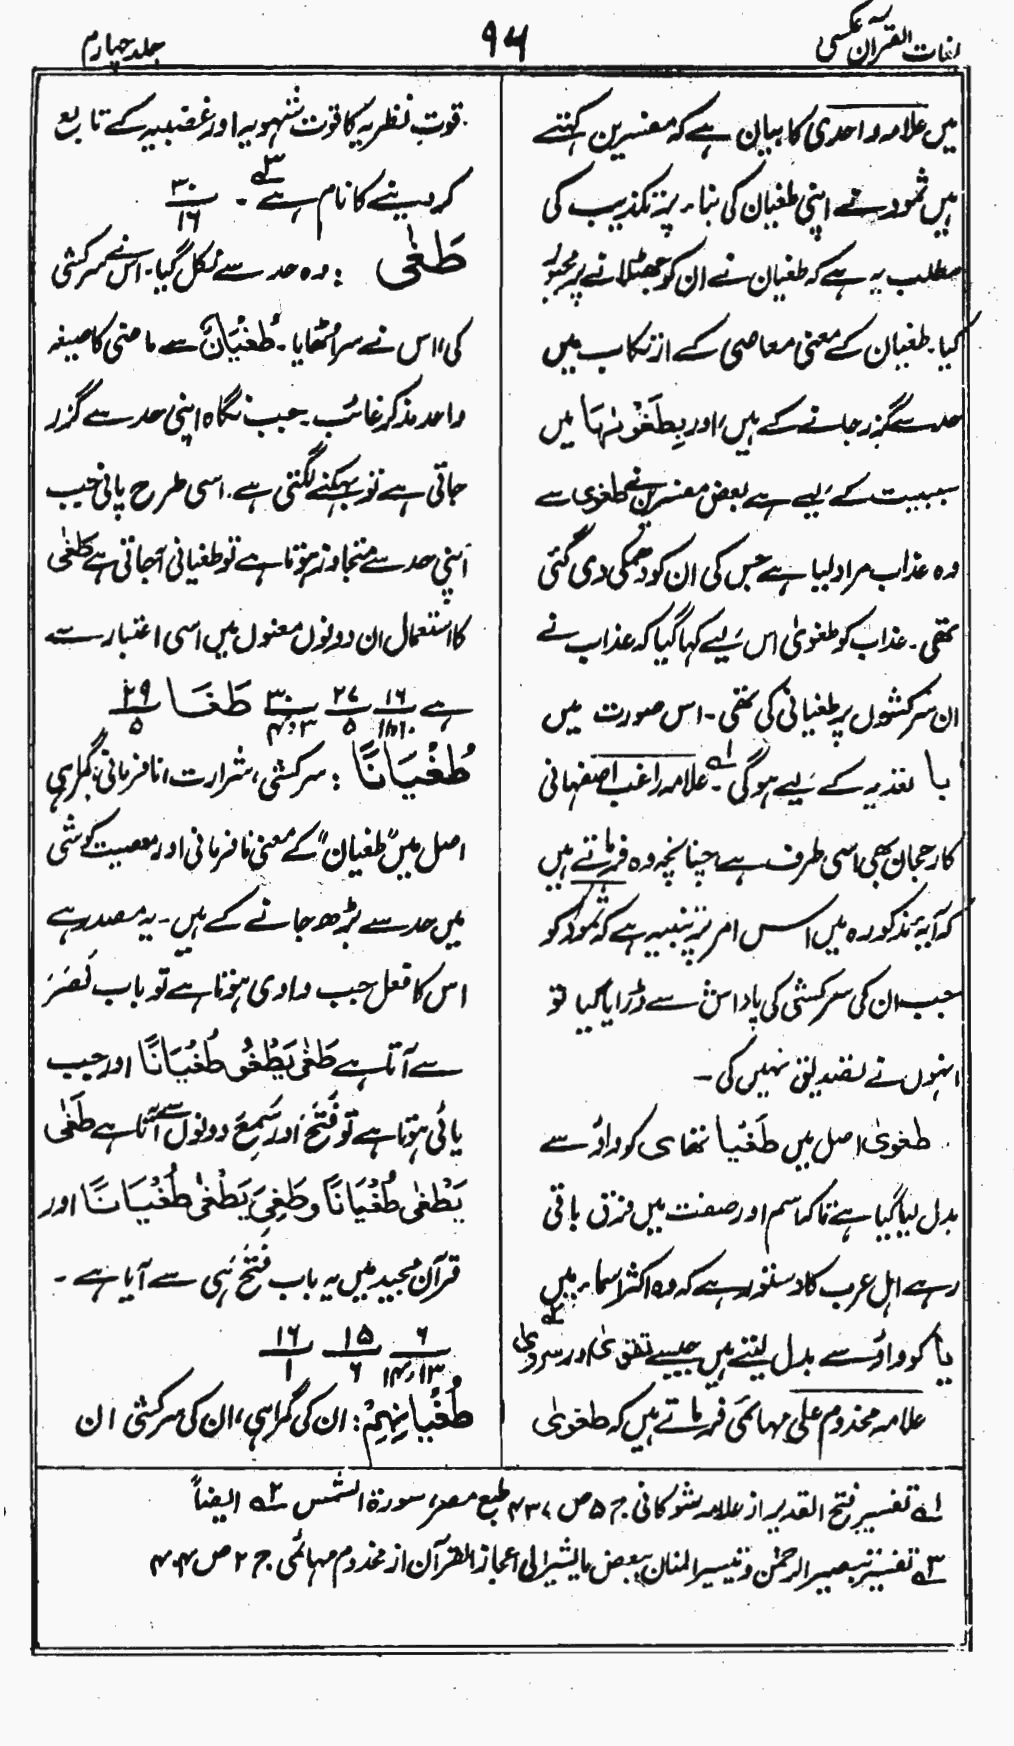 لغات القرآن عکسی
۹۴
جلد چہارم
میں علامہ واحدی کا بیان ہے کہ مفسرین کہتے
ہیں ثمود نے اپنی طغیان کی بناء پر تکذیب کی
مطلب یہ ہے کہ طغیان نے ان کو جھٹلانے پر مجبور
کیا۔ طغیان کے معنی معاصی کے ارتکاب میں
حد سے گزر جانے کے ہیں، اور بِطَغْوٰىهَا میں
سببیت کے لیے ہے بعض مفسرین نے طغوی سے
وہ عذاب مراد لیا ہے جس کی ان کو دھمکی دی گئی
تھی۔ عذاب کو طغویٰ اس لیے کہا گیا کہ عذاب نے
ان سرکشوں پر طغیانی کی تھی۔ اس صورت میں
با تعدیہ کے لیے ہوگی۔ ؎۱ علامہ راغب اصفہانی
کا رجحان بھی اسی طرف ہے، چنانچہ وہ فرماتے ہیں
کہ آیہ مذکورہ میں اس امر پر تنبیہ ہے کہ ثمود کو
جب ان کی سرکشی کی پاداش سے ڈرایا گیا تو
انہوں نے تصدیق نہیں کی۔
طغویٰ اصل میں طَغْیَا تھا ی کو واؤ سے
بدل لیا گیا ہے تاکہ اسم اور صفت میں فرق باقی
رہے اہل عرب کا دستور ہے کہ وہ اکثر اسماء میں
یا کو واؤ سے بدل لیتے ہیں جیسے تقویٰ اور سرویٰ ؎۲
علامہ مخدوم علی مہائمی فرماتے ہیں کہ طغویٰ
قوتِ نظریہ کا قوت شہویہ اور غضبیہ کے تابع
کر دینے کا نام ہے ؎۳۔ ۳۰/۱۶
طَغٰی : وہ حد سے نکل گیا۔ اس نے سرکشی
کی، اس نے سر اٹھایا۔ طُغْیَانٌ سے ماضی کا صیغہ
واحد مذکر غائب۔ جب نگاہ اپنی حد سے گزر
جاتی ہے تو بہکنے لگتی ہے۔ اسی طرح پانی جب
اپنی حد سے متجاوز ہوتا ہے تو طغیانی آجاتی ہے طَغٰی
کا استعمال ان دونوں معنوں میں اسی اعتبار سے
ہے ۱۶/۱۱،۱۰ ۲۷/۵ ۳۰/۳،۴ طَغَا ۲۹/۵
طُغْیَانًا : سرکشی، شرارت، نافرمانی، گمراہی
اصل میں "طغیان" کے معنی نافرمانی اور معصیت کوشی
میں حد سے بڑھ جانے کے ہیں۔ یہ مصدر ہے
اس کا فعل جب واوی ہوتا ہے تو باب نَصَرَ
سے آتا ہے طَغٰی یَطْغُو طُغْیَانًا اور جب
یائی ہوتا ہے تو فَتَحَ اور سَمِعَ دونوں سے آتا ہے طَغٰی
یَطْغٰی طُغْیَانًا و طَغِیَ یَطْغٰی طُغْیَانًا اور
قرآن مجید میں یہ باب فَتَحَ ہی سے آیا ہے۔
۶/۱۳،۱۴ ۱۵/۶ ۱۶/۱
طُغْیَانِہِمْ : ان کی گمراہی، ان کی سرکشی ان
؎۱ تفسیر فتح القدیر از علامہ شوکانی ج ۵ ص ۴۳۷ طبع مصر، سورۃ الشمس ؎۲ ایضاً
؎۳ تفسیر تبصیر الرحمٰن و تیسیر المنان ببعض ما یشیر الی اعجاز القرآن از مخدوم مہائمی ج ۲ ص ۴۰۴